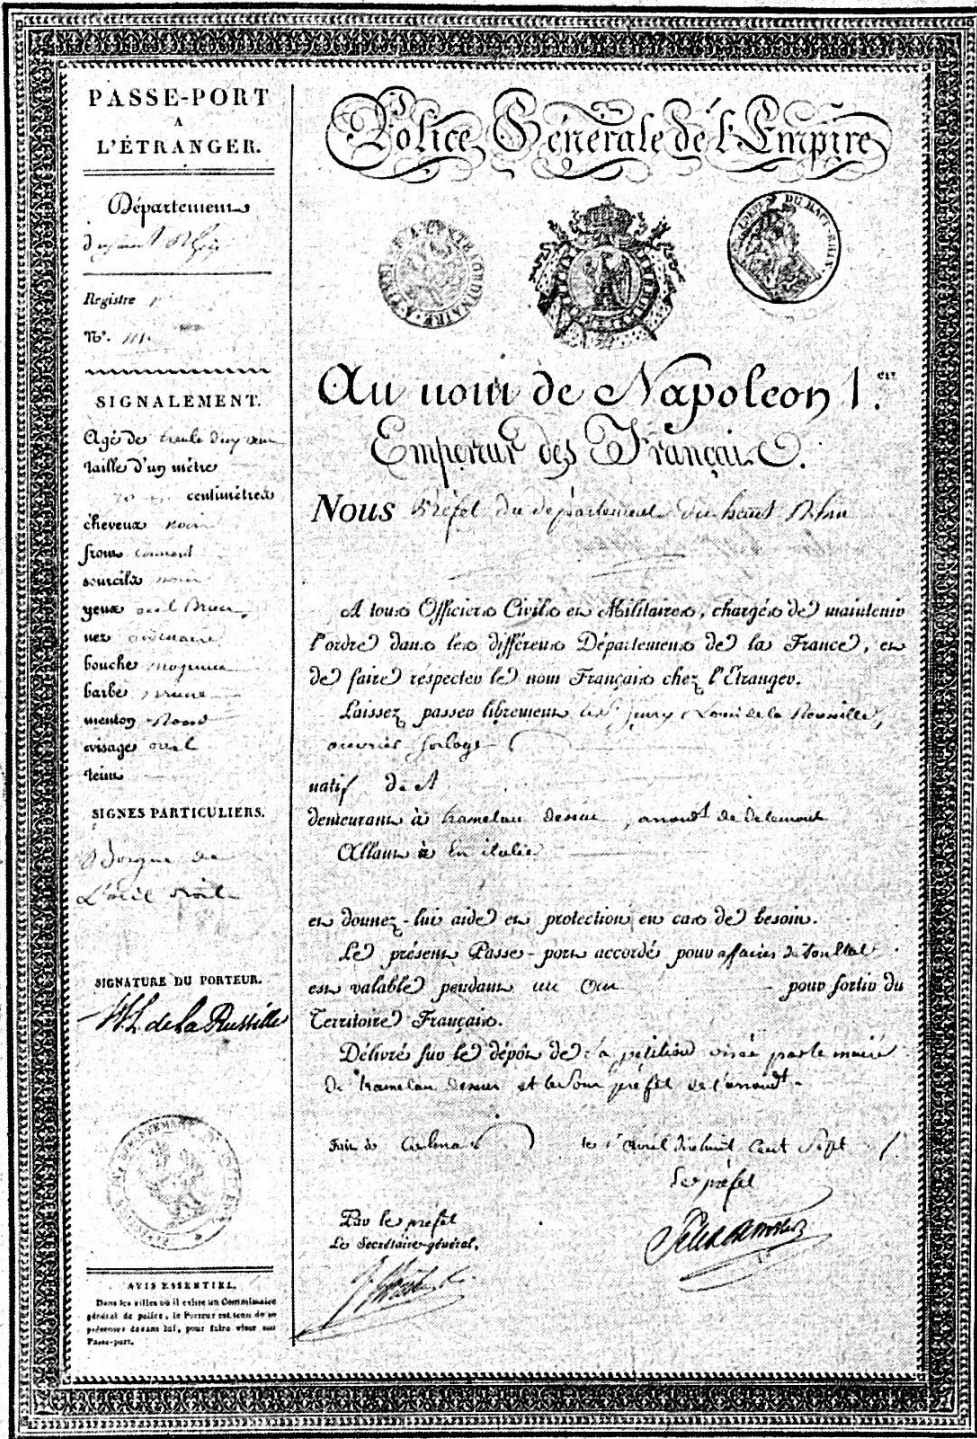 PASSE-PORT
A
L'ÉTRANGER.
Département
Registre
N.º
SIGNALEMENT.
Agé de trente
taille d'un mètre
centimètres
cheveux noir
front
sourcils noir
yeux
nez ordinaire
bouche moyenne
barbe brune
menton rond
visage oval
teint
SIGNES PARTICULIERS.
Borgne de
L'œil
SIGNATURE DU PORTEUR.
de la Russille
AVIS ESSENTIEL.
Dans les villes où il existe un Commissaire
général de police, le Porteur est tenu de se
présenter devant lui, pour faire viser son
Passe-port.
Police Générale de l'Empire
EXTRAORDINAIRE
DU HAUT-RHIN
Au nom de Napoleon 1.er
Empereur des Français.
Nous Préfet du département du haut Rhin
A tous Officiers Civils et Militaires, chargés de maintenir
l'ordre dans les différens Départemens de la France, et
de faire respecter le nom Français chez l'Etranger.
Laissez passer librement Louis de la
ouvrier
natif de
demeurant à tramelan dessus, arrond.t de delemont
Allant à En italie
et donnez-lui aide et protection en cas de besoin.
Le présent Passe-port accordé pour affaires de
est valable pendant un an pour sortir du
Territoire Français.
Délivré sur le dépôt de la petition visée par le maire
de tramelan dessus et le Sous préfet de l'arrond.t
Fait à Colmar le avril dixhuit Cent Sept
Le préfet
Par le préfet
Le Secrétaire-général,